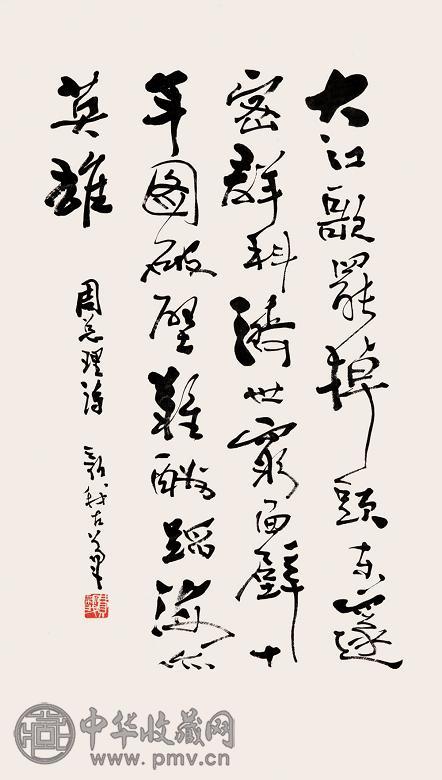 大江歌罢掉头东邃
密群科济世穷面壁十
年图破壁难酬蹈海亦
英雄
周总理诗
中华收藏网
www.pmv.cn